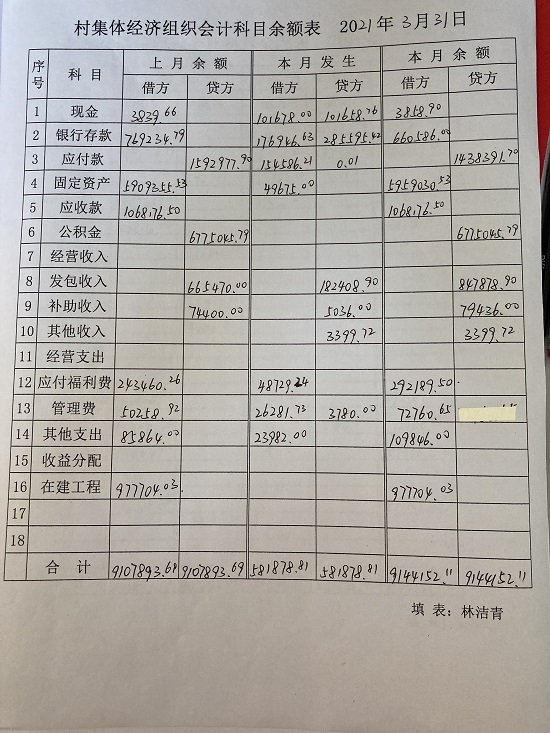 村集体经济组织会计科目余额表 2021年3月31日
序号 科目 上月余额 本月发生 本月余额
借方 贷方 借方 贷方 借方 贷方
1 现金 3839.66 101678.00 101658.76 3858.90
2 银行存款 769234.79 176946.63 285595.42 660586.00
3 应付款 1592977.90 154586.21 0.01 1438391.70
4 固定资产 5909355.53 49675.00 5959030.53
5 应收款 1068176.50 1068176.50
6 公积金 6775045.79 6775045.79
7 经营收入
8 发包收入 665470.00 182408.90 847878.90
9 补助收入 74400.00 5036.00 79436.00
10 其他收入 3399.72 3399.72
11 经营支出
12 应付福利费 243460.26 48729.24 292189.50
13 管理费 50258.92 26281.73 3780.00 72760.65
14 其他支出 85864.00 23982.00 109846.00
15 收益分配
16 在建工程 977704.03 977704.03
17
18
合计 9107893.69 9107893.69 581878.81 581878.81 9144152.11 9144152.11
填表：林洁青